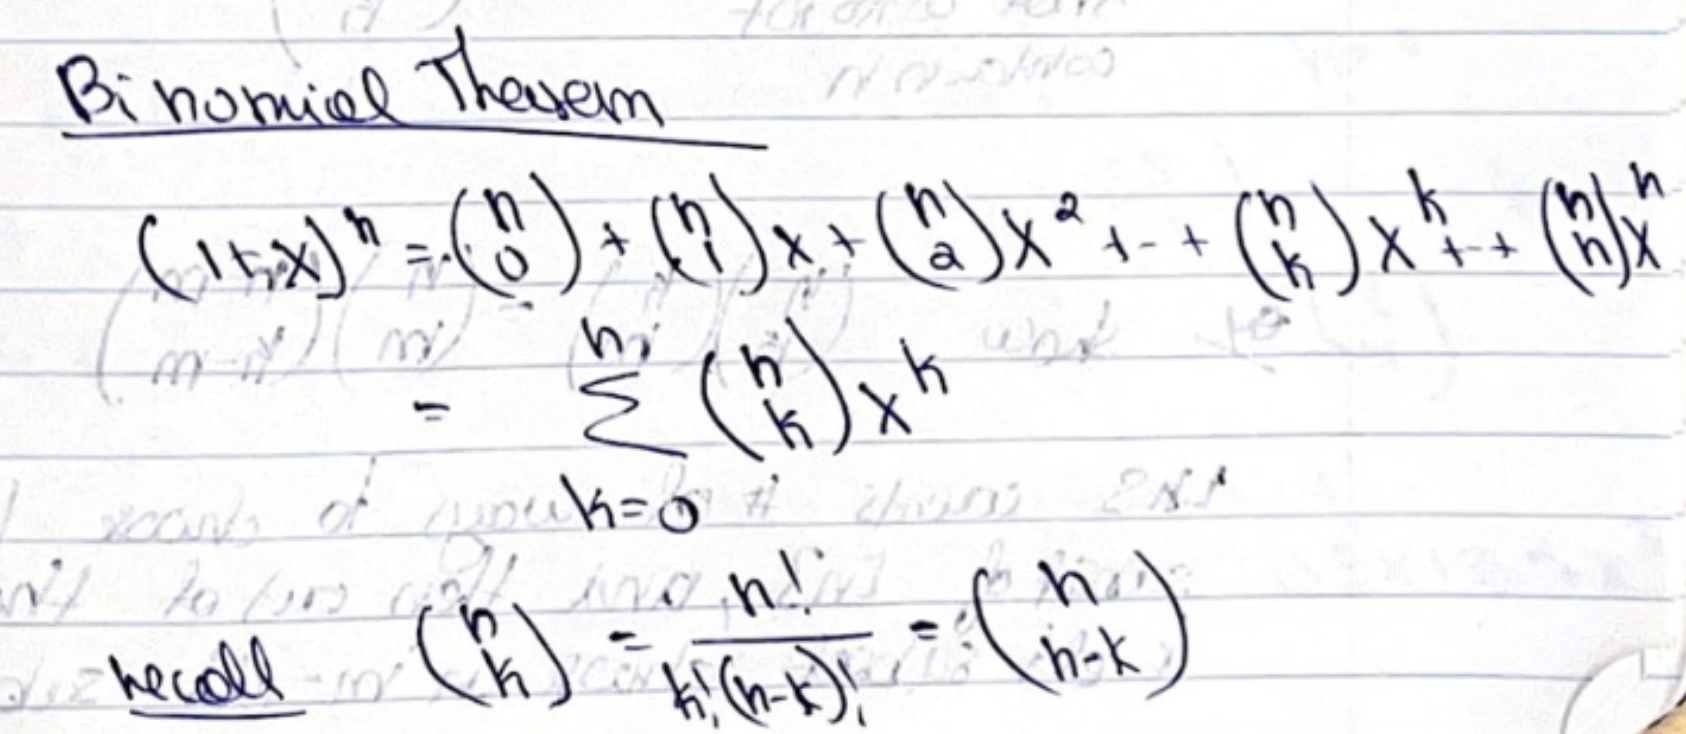 Binomial Theorem
(1+x)^n = (n 0) + (n 1)x + (n 2)x^2 + -- + (n k)x^k + -- + (n n)x^n
= Σ_{k=0}^{n} (n k) x^k
recall (n k) = n! / k!(n-k)! = (n n-k)